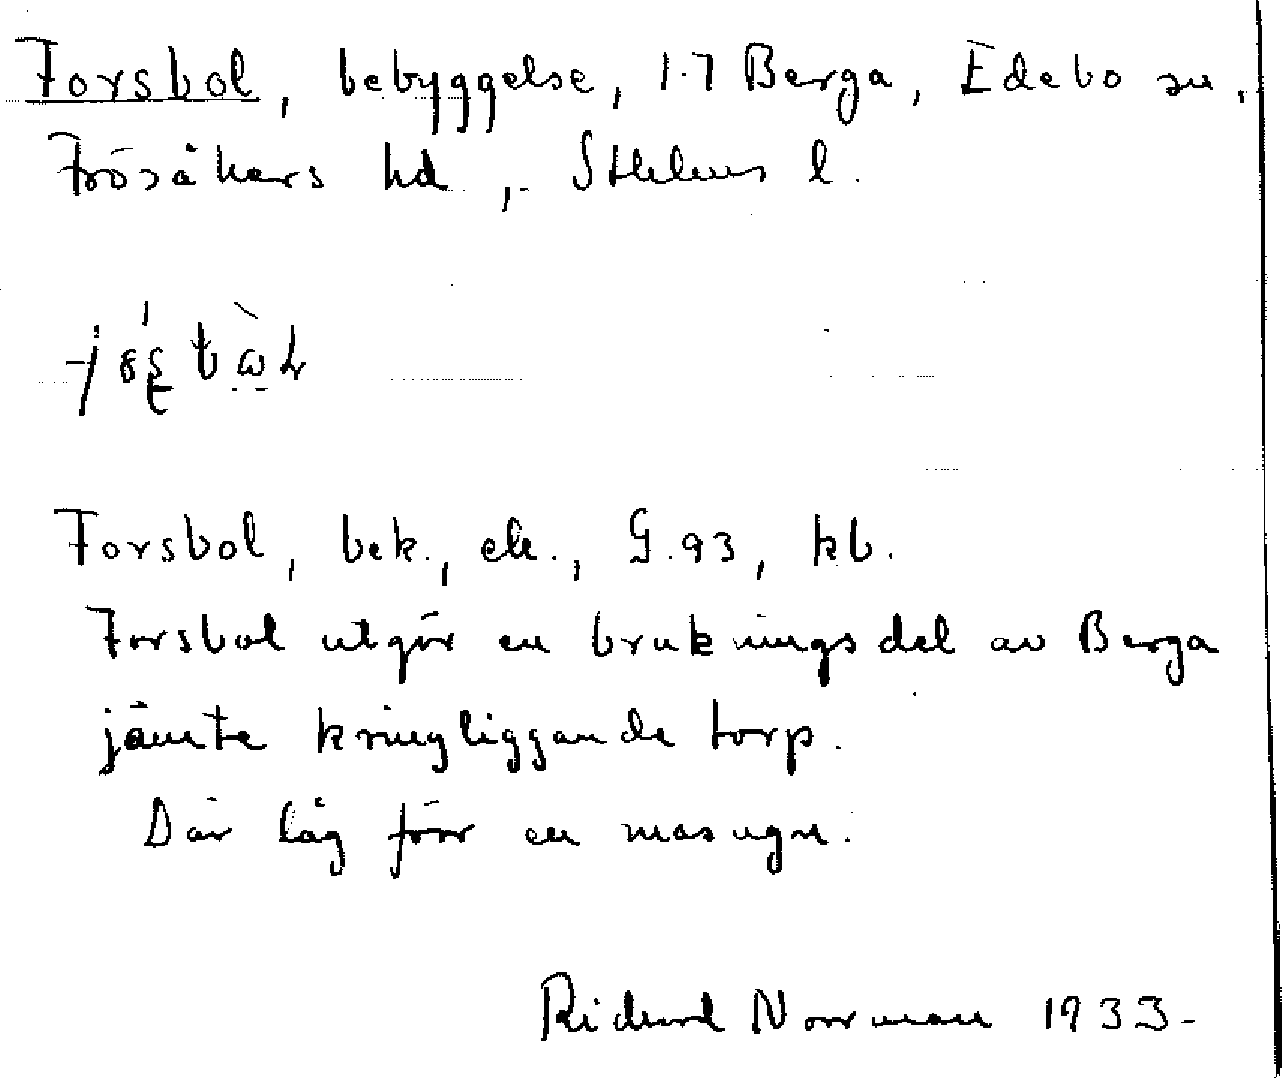 Forsbol, bebyggelse, 1.7 Berga, Edebo sn.
Frösåkers hd, Sthlms l.
Forsbol, bek., ek., G.93, kb.
Forsbol utgör en brukningsdel av Berga
jämte kringliggande torp.
Där låg förr en masugn.
Richard Norrman 1933-